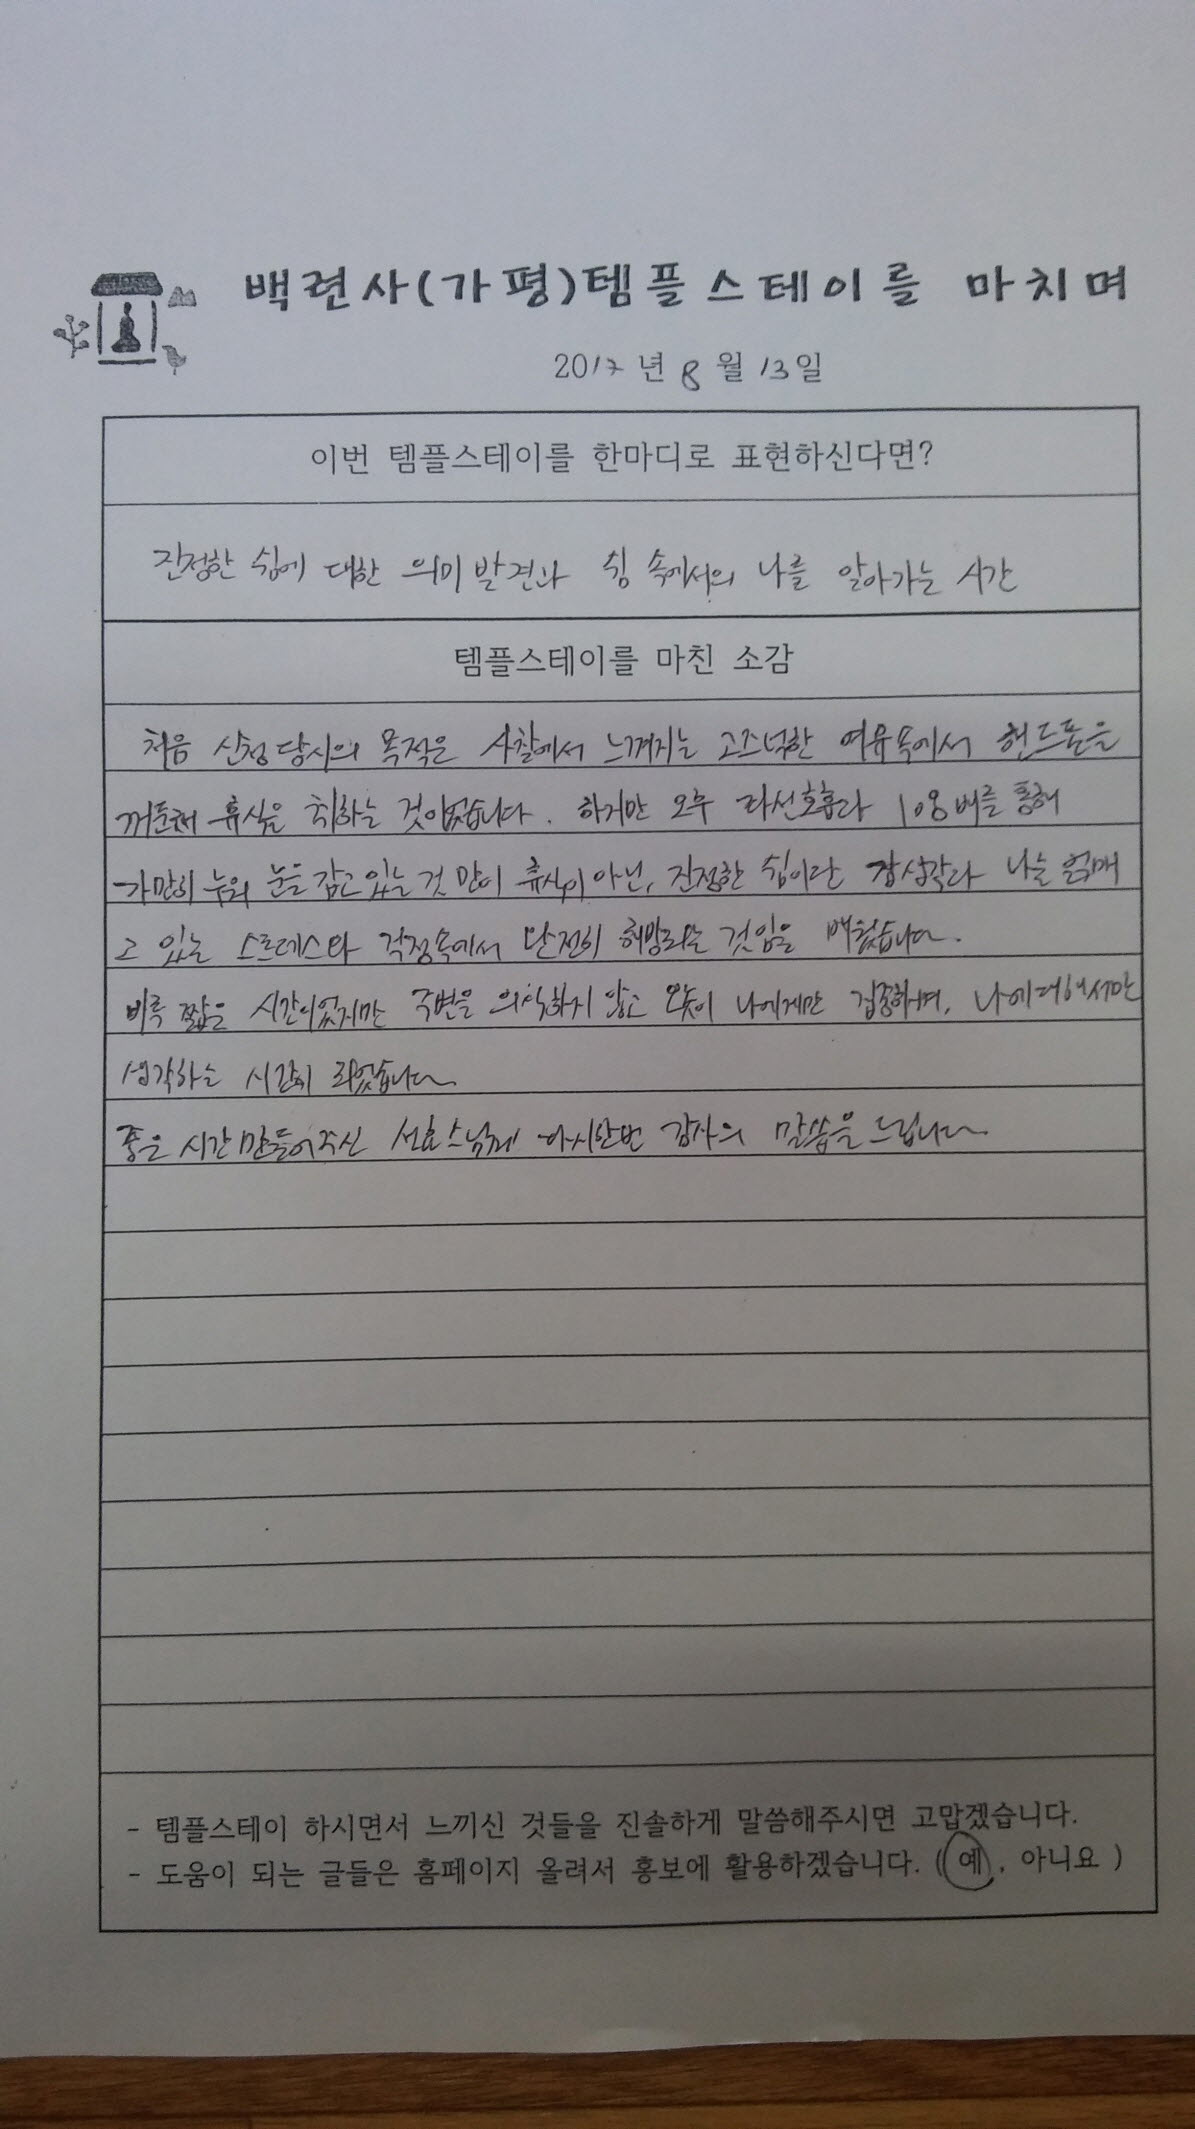 백련사(가평)템플스테이를 마치며
2017년 8월 13일
이번 템플스테이를 한마디로 표현하신다면?
진정한 쉼에 대한 의미 발견과 쉼 속에서의 나를 알아가는 시간
템플스테이를 마친 소감
처음 신청 당시의 목적은 사찰에서 느껴지는 고즈넉한 여유속에서 핸드폰을
꺼둔채 휴식을 취하는 것이었습니다. 하지만 오후 파선호흡과 108배를 통해
가만히 누워 눈을 감고 있는 것 만이 휴식이 아닌, 진정한 쉼이란 잡생각과 나를 얽매
고 있는 스트레스와 걱정속에서 완전히 해방되는 것임을 배웠습니다.
비록 짧은 시간이었지만 주변을 의식하지 않고 오롯이 나에게만 집중하며, 나에대해서만
생각하는 시간이 되었습니다.
좋은 시간 만들어주신 선효스님께 다시한번 감사의 말씀을 드립니다.
- 템플스테이 하시면서 느끼신 것들을 진솔하게 말씀해주시면 고맙겠습니다.
- 도움이 되는 글들은 홈페이지 올려서 홍보에 활용하겠습니다. (예, 아니요 )